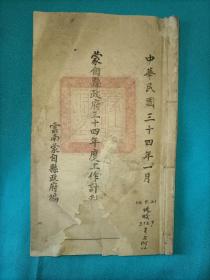 中華民國三十四年一月
蒙自縣政府三十四年度工作計劃
雲南蒙自縣政府編